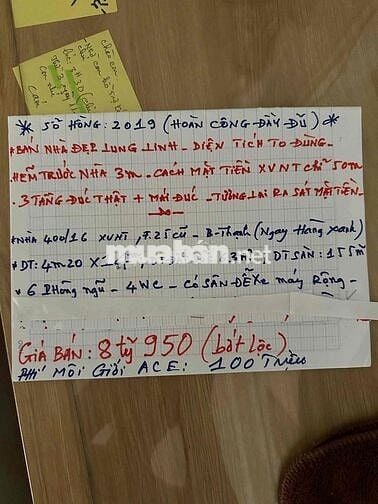 * SỔ HỒNG: 2019 (HOÀN CÔNG ĐẦY ĐỦ) *
* BÁN NHÀ ĐẸP LUNG LINH - DIỆN TÍCH TO ĐÙNG -
. HẺM TRƯỚC NHÀ 3m - CÁCH MẶT TIỀN XVNT CHỈ 50m
. 3 TẦNG ĐÚC THẬT + MÁI ĐÚC - TƯƠNG LAI RA SÁT MẶT TIỀN
* NHÀ 400/16 XVNT, F.25 CŨ - B-Thạnh (Ngay Hàng Xanh)
* DT: 4m20 X DT SÀN: 155m
* 6 Phòng ngủ - 4 WC - Có SÂN ĐỂ Xe máy Rộng -
muaban.net
GIÁ BÁN: 8 tỷ 950 (bớt lộc)
PHÍ MÔI GIỚI ACE: 100 TRIỆU